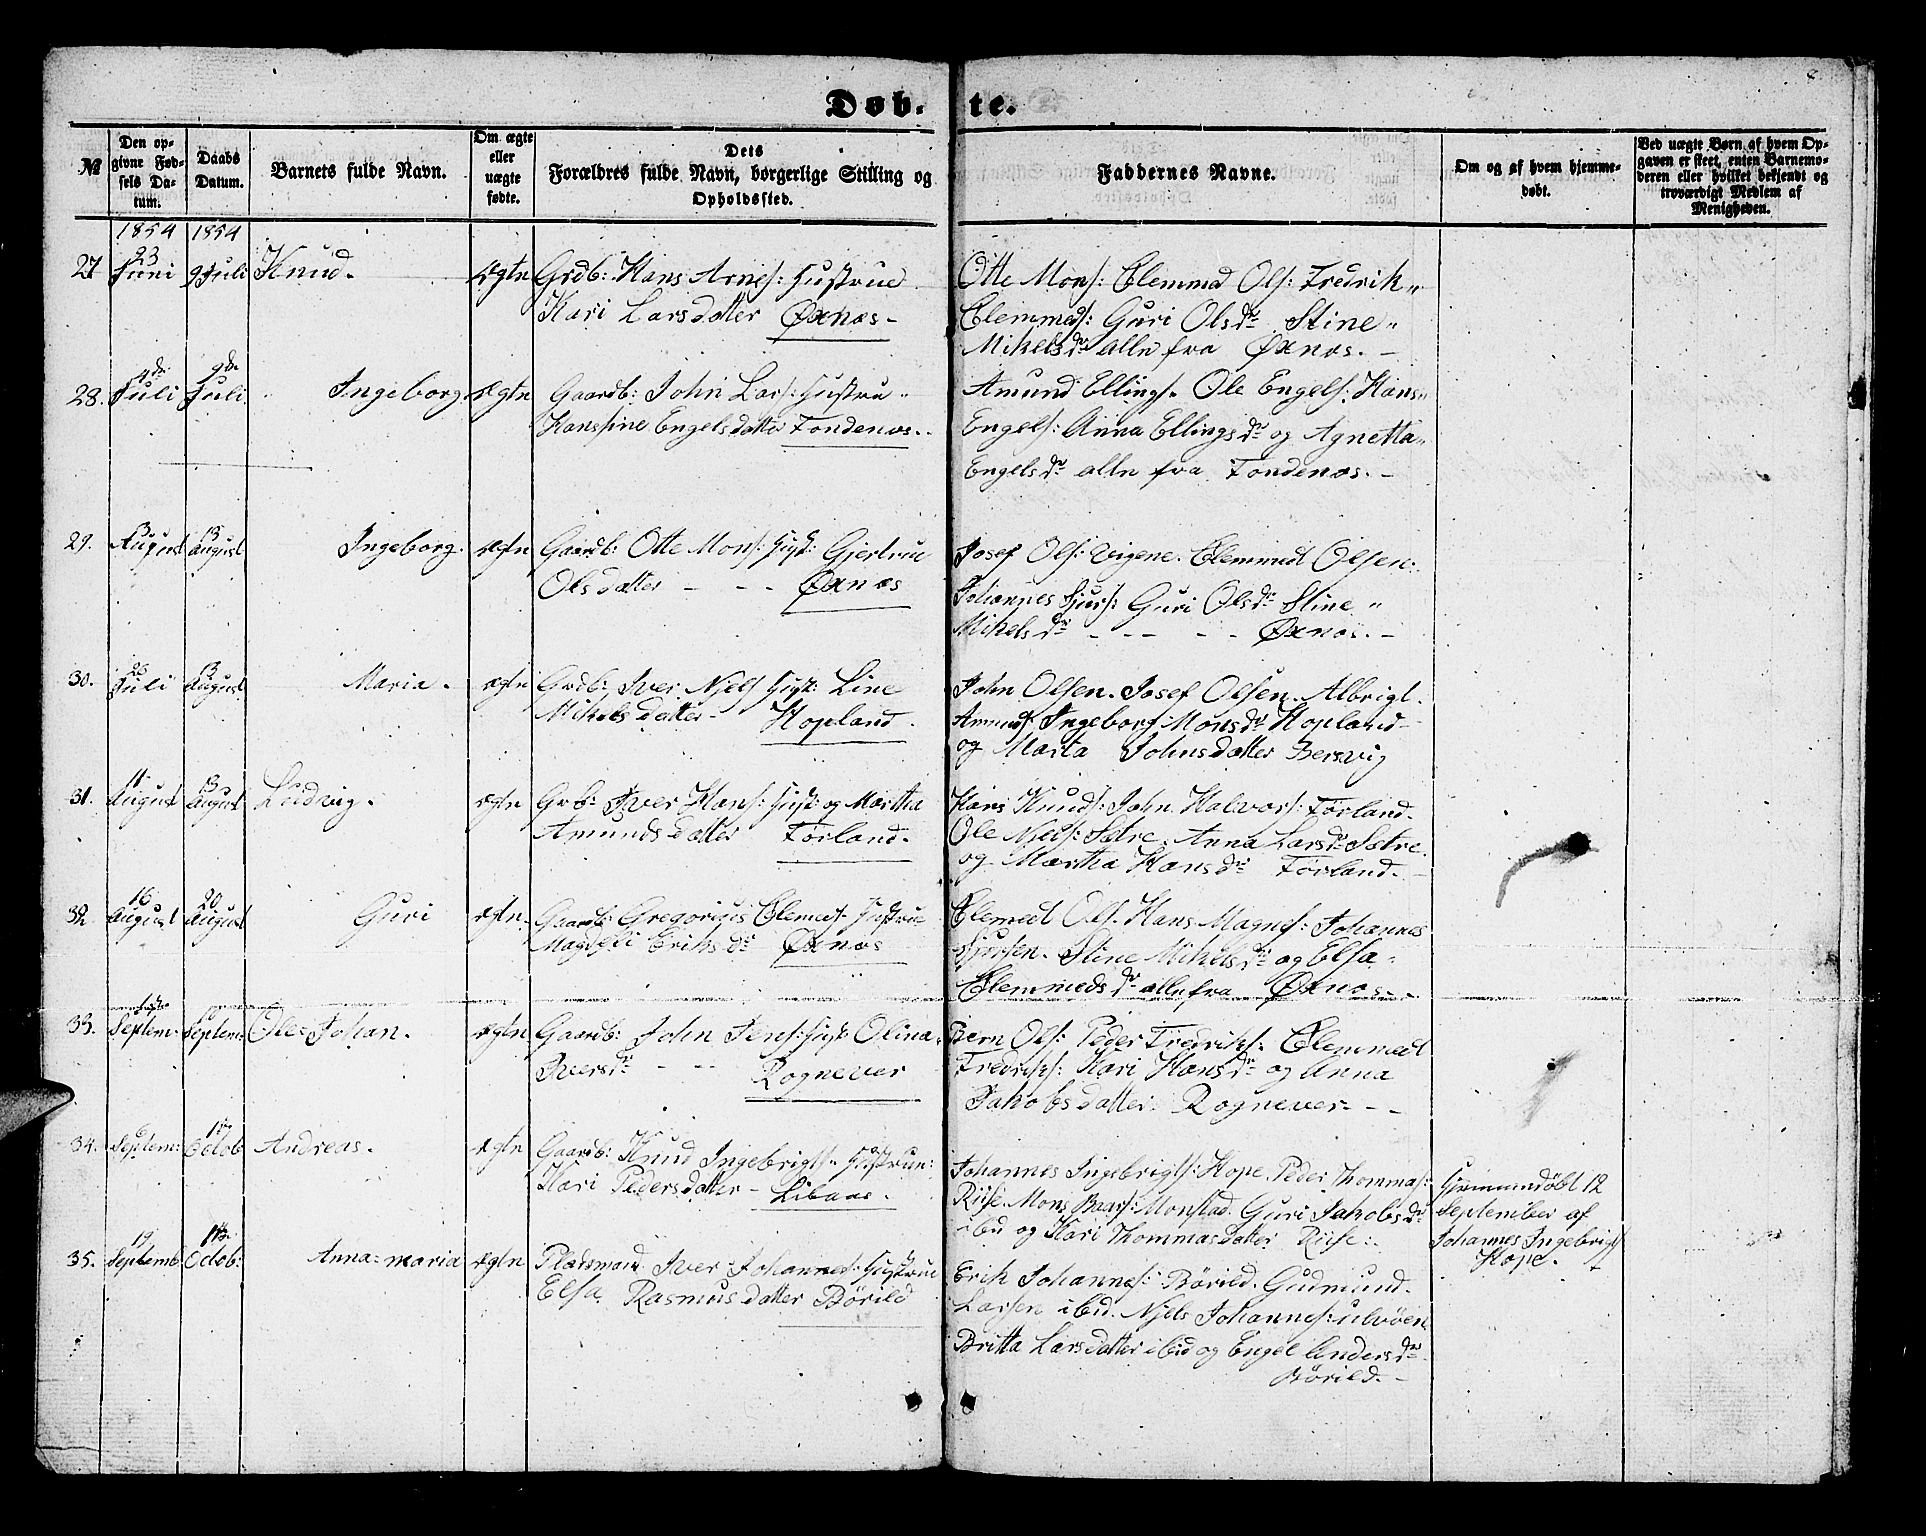 8
Døb- te.
№
Den op-
givne Fød-
sels Da-
tum.
Daabs
Datum.
Barnets fulde Navn.
Om ægte
eller
uægte
fødte.
Dets
Forældres fulde Navn, borgerlige Stilling og
Opholdssted.
Faddernes Navne.
Om og af hvem hjemme-
døbt.
Ved uægte Børn af hvem Op-
gaven er skeet, enten Barnemo-
deren eller hvilket bekjendt og
troværdigt Medlem af
Menigheden.
1854 1854
27 23 Juni 9 Juli Knud. ægtn Grdb: Hans Arnes: Hustrue
Kari Larsdatter Øxnæs-
Otte Mons: Clemmed Ols: Fredrik„
Clemmeds: Guri Olsdr Stine„
Mikelsdr alle fra Øxnæs.-
28. 4de Juli 9de Juli. Ingeborg. ægtn Gaardb: John Lars: Hustru„
Hanssine Engelsdatter Tondenæs.
Amund Ellings. Ole Engels: Hans„
Engels: Anna Ellingsdr og Agnetta„
Engelsdr alle fra Tondenæs.-
29. 3 August 13 August Ingeborg. ægtn Gaardb: Otte Mons: Hust: Gjertrue
Olsdatter - - - Øxnæs
Josef Ols: Vigene. Clemmedt Olsen:
Johannes Sjurs: Guri Olsdr Stine„
Mikelsdr - - - - - Øxnæs.-
30. 26 Juli 13 August Maria. ægtn Grdb: Iver Njels Hust: Line
Mikelsdatter- Hopland.
John Olsen. Josef Olsen. Albrigt.
Amunds Ingeborg Monsdr Hopland-
og Marta Johnsdatter Bersvig
31. 11 August 13 August Ludvig. ægtn Grb: Iver Hans: Hust: og Martha
Amundsdatter Førland.
Hans Knuds: John Halvors: Førland.
Ole Njels: Sætre. Anna Larsdr Sætre.
og Martha Hansdr Førland.-
32 16 August 20 August Guri ægtn. Gaardb: Gregorius Clemet- Hustrue
Eriksdr Øxnæs
Clemedt Ols. Hans Magnes: Johannes
Sjursen. Stine Mikelsdr og Elsa-
Clemmedsdr alle fra Øxnæs.-
33. 1ste Septem- 10 Septem: Ole=Johan. ægtn Gaardb: John Jens: Hust: Olina.
Iversdr - - - Rognever
Bern Ols: Peder Fredriks. Clemmedt
Fredriks: Kari Hansdr og Anna
Jakobsdatter. Rognever. - -
34. 6 Septem: 1ste Octob Andreas. ægtn Gaardb: Knud Ingebrigts. Hustrue:
Kari Pedersdatter - Libaas.
Johannes Ingebrigts: Hope. Peder Thommas:
Riise. Mons Baars: Monstad. Guri Jakobsdr
ibid og Kari Thommasdatter Riise:
Hjemmedøbt 12
September af
Johannes Ingebrigts
Hope.
35. 19 Septemb 1ste Octob: Anna=maria ægtn Pladsmand Iver Johannes: Hustrue
Elsa Rasmusdatter Börild
Erik Johannes: Börild. Gudmund.
Larsen ibid. Njels Johannes: Ulvöen
Britta Larsdatter ibid og Engel Andersdr
Börild.-